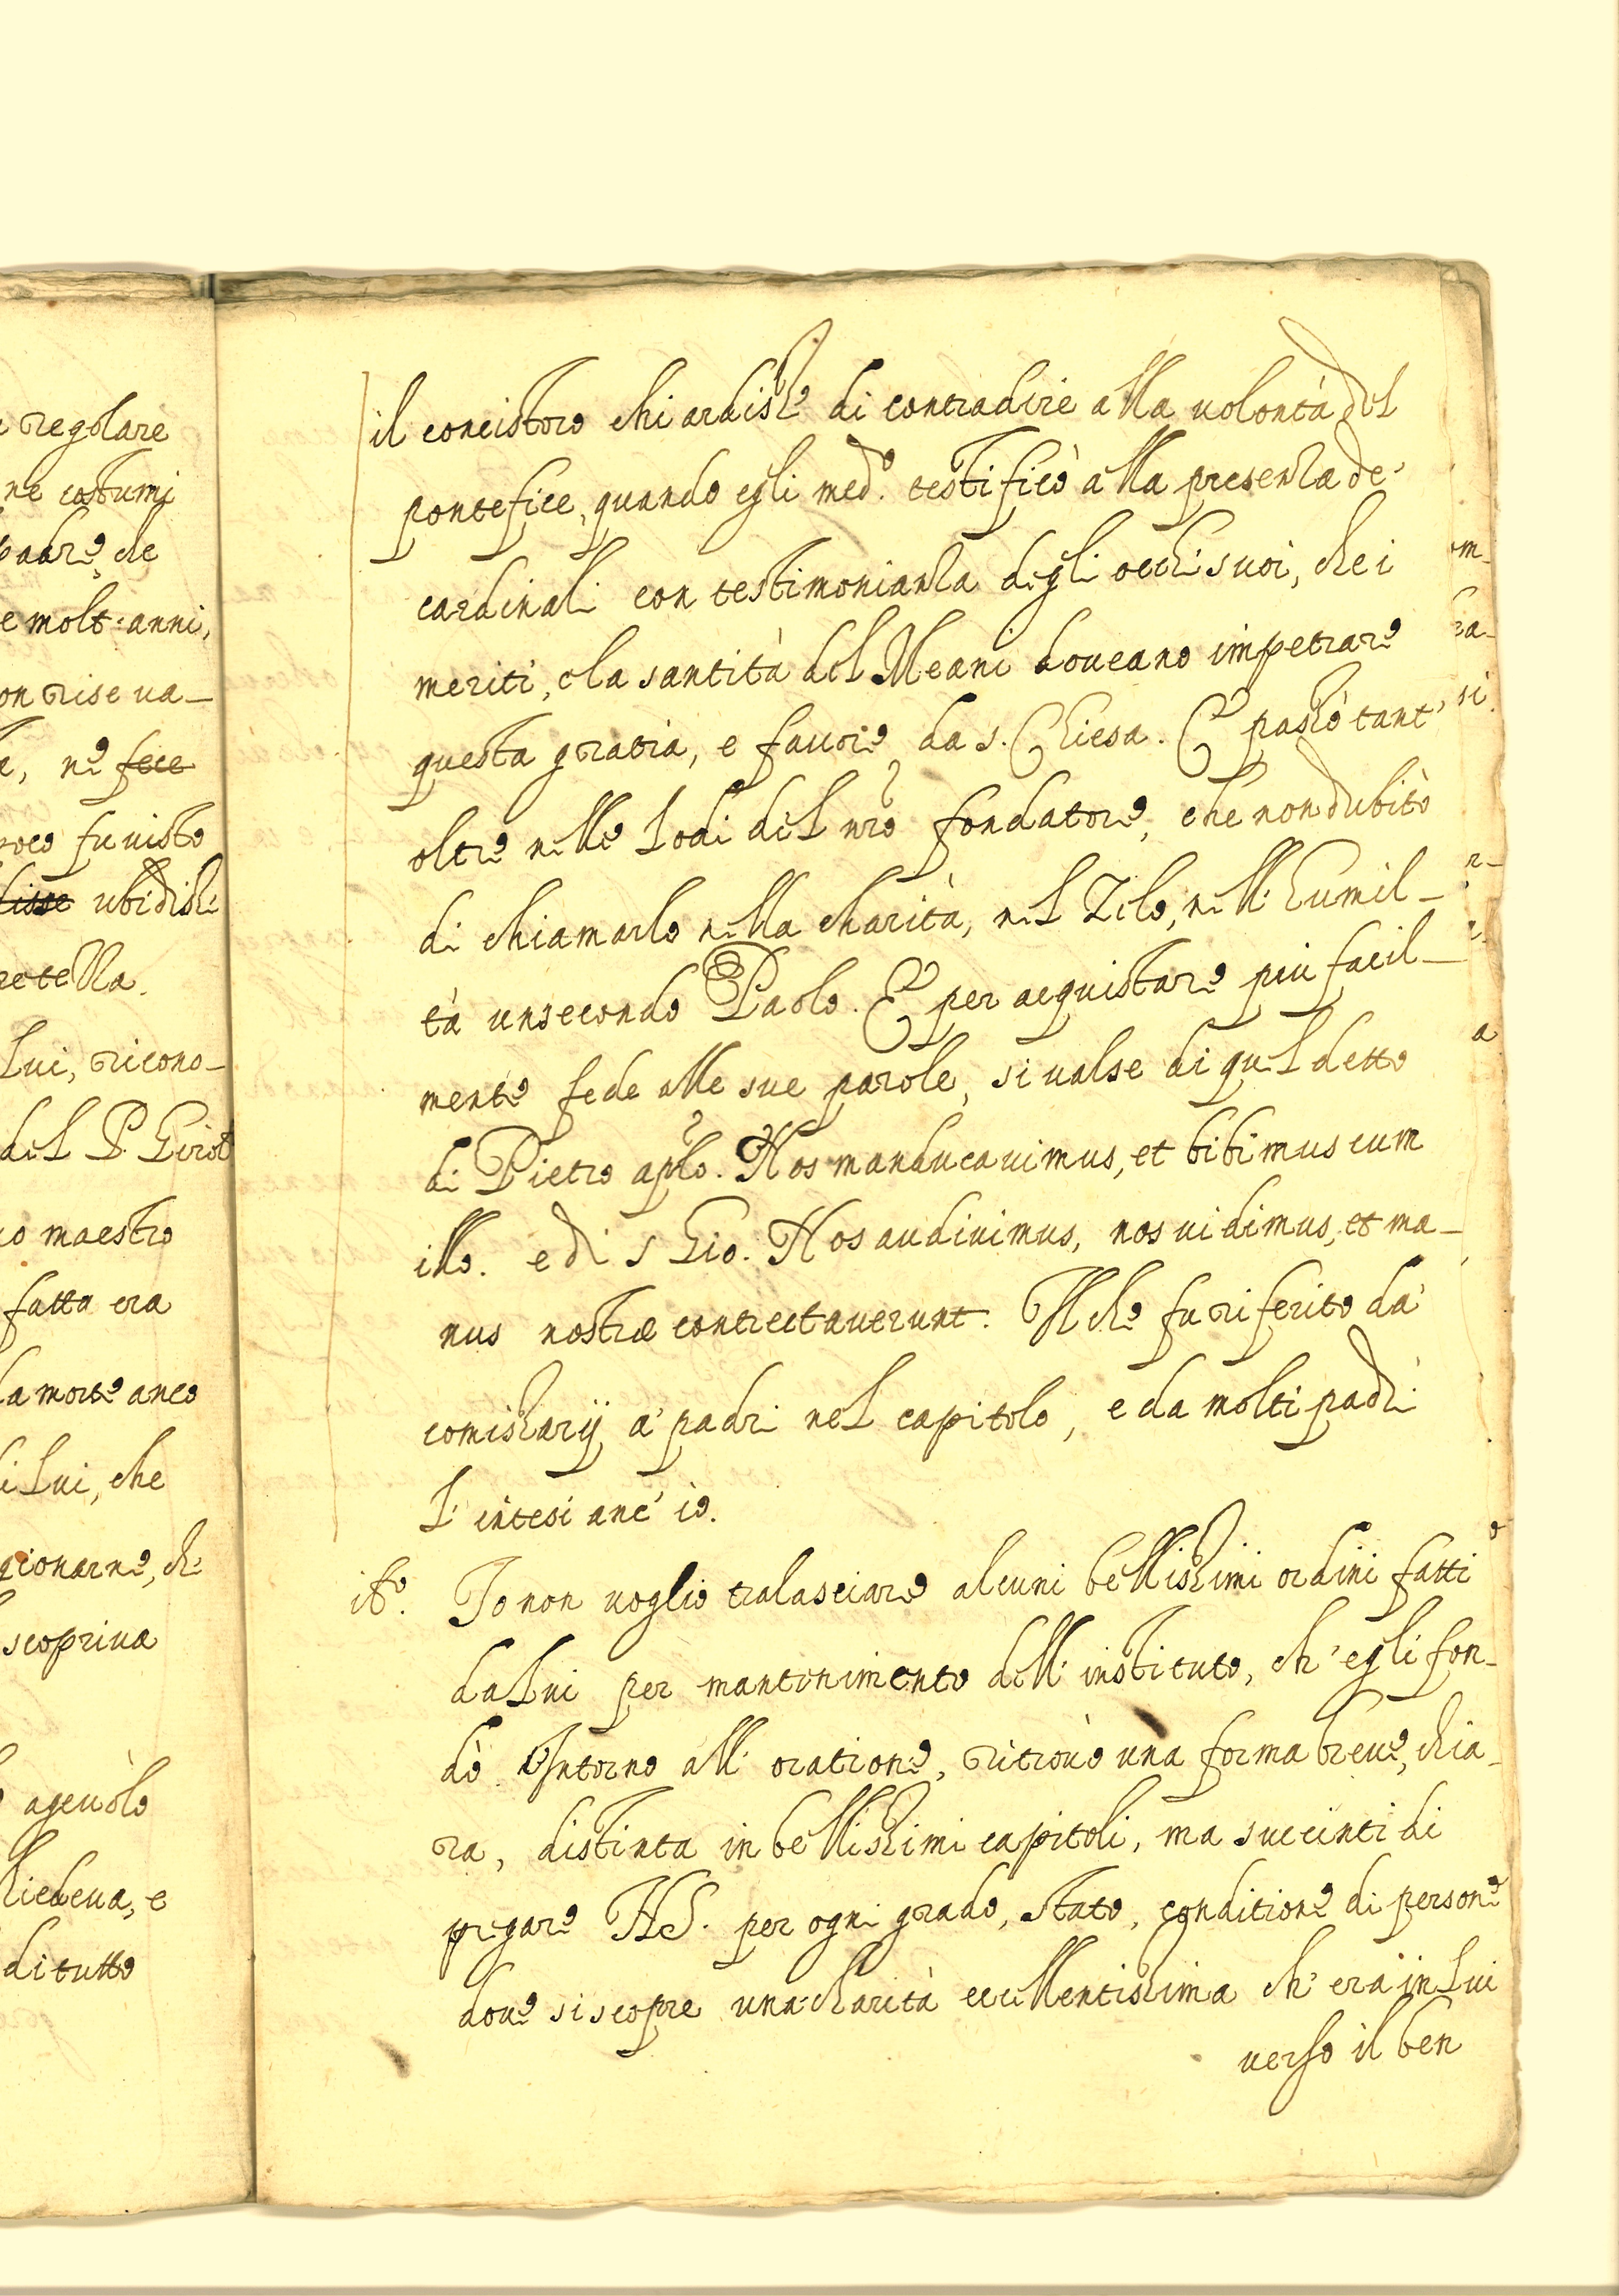 regolare
ne costumi
padre, che
e molt'anni,
on riseua-
a, ne fece
poco fu uisto
disse ubidisse
retella.
Lui, ricono-
del P. Girol
uo maestro
fatta era
la morte anco
di Lui, che
gionarne, che
scopriua
ageuolo
hiedeua, e
di tutto
il concistoro chi ardisse di contradire alla uolontà del
pontefice, quando egli med.o testificò alla presenza de'
cardinali con testimonianza degli occhi suoi, che i
meriti, e la santità del Meani doueano impetrare
questa gratia, e fauore da s. Chiesa. E passò tant'
oltre nelle Lodi del nro fondatore, che non dubitò
di chiamarlo nella charità, nel Zelo, nell'humil-
tà un secondo Paolo. E per acquistare più facil-
mente fede alle sue parole, si ualse di quel detto
di Pietro aplo. Nos manducauimus, et bibimus cum
illo. e di s Gio. Nos audiuimus, nos uidimus, et ma-
nus nostræ contrectauerunt. Il che fu riferito da'
comissarij a' padri nel capitolo, e da molti padri
L'intesi anc'io.
Io non uoglio tralasciare alcuni bellissimi ordini fatti
da Lui per mantenimento dell'instituto, ch'egli fon-
dò. Intorno all'oratione, ritrouò una forma breue, chia-
ra, distinta in bellissimi capitoli, ma succinti di
pregare per ogni grado, stato, conditione di persone
doue si scopre una charità eccellentissima ch'era in Lui
uerso il ben